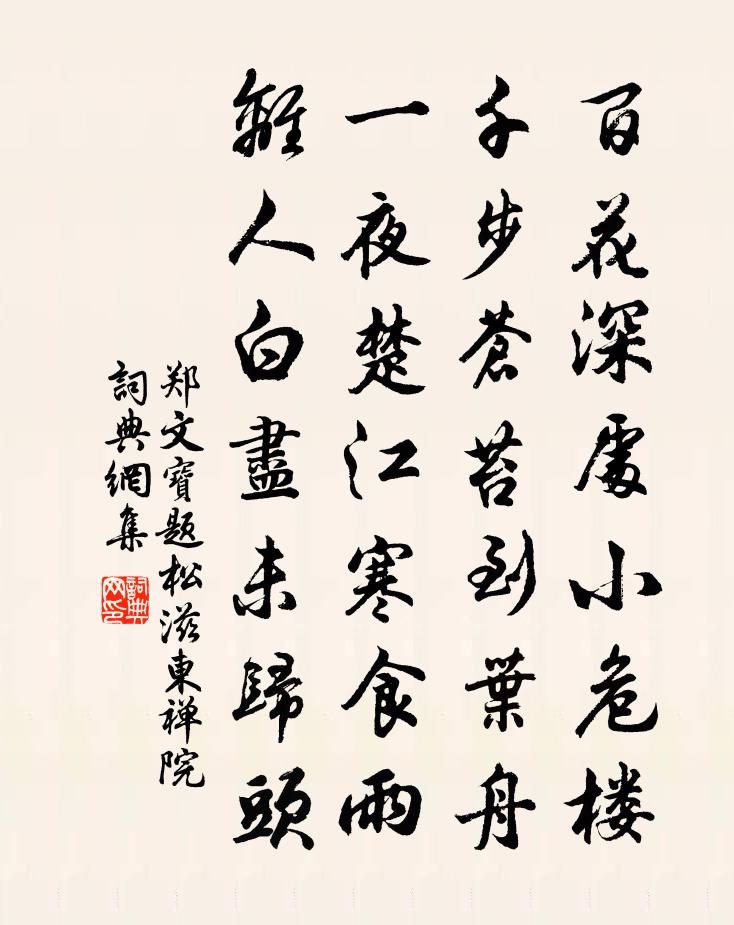 百花深處小危楼
千步蒼苔到葉舟
一夜楚江寒食雨
離人白盡未歸頭
郑文寶題松滋東禅院
詞典網集
詞典網印